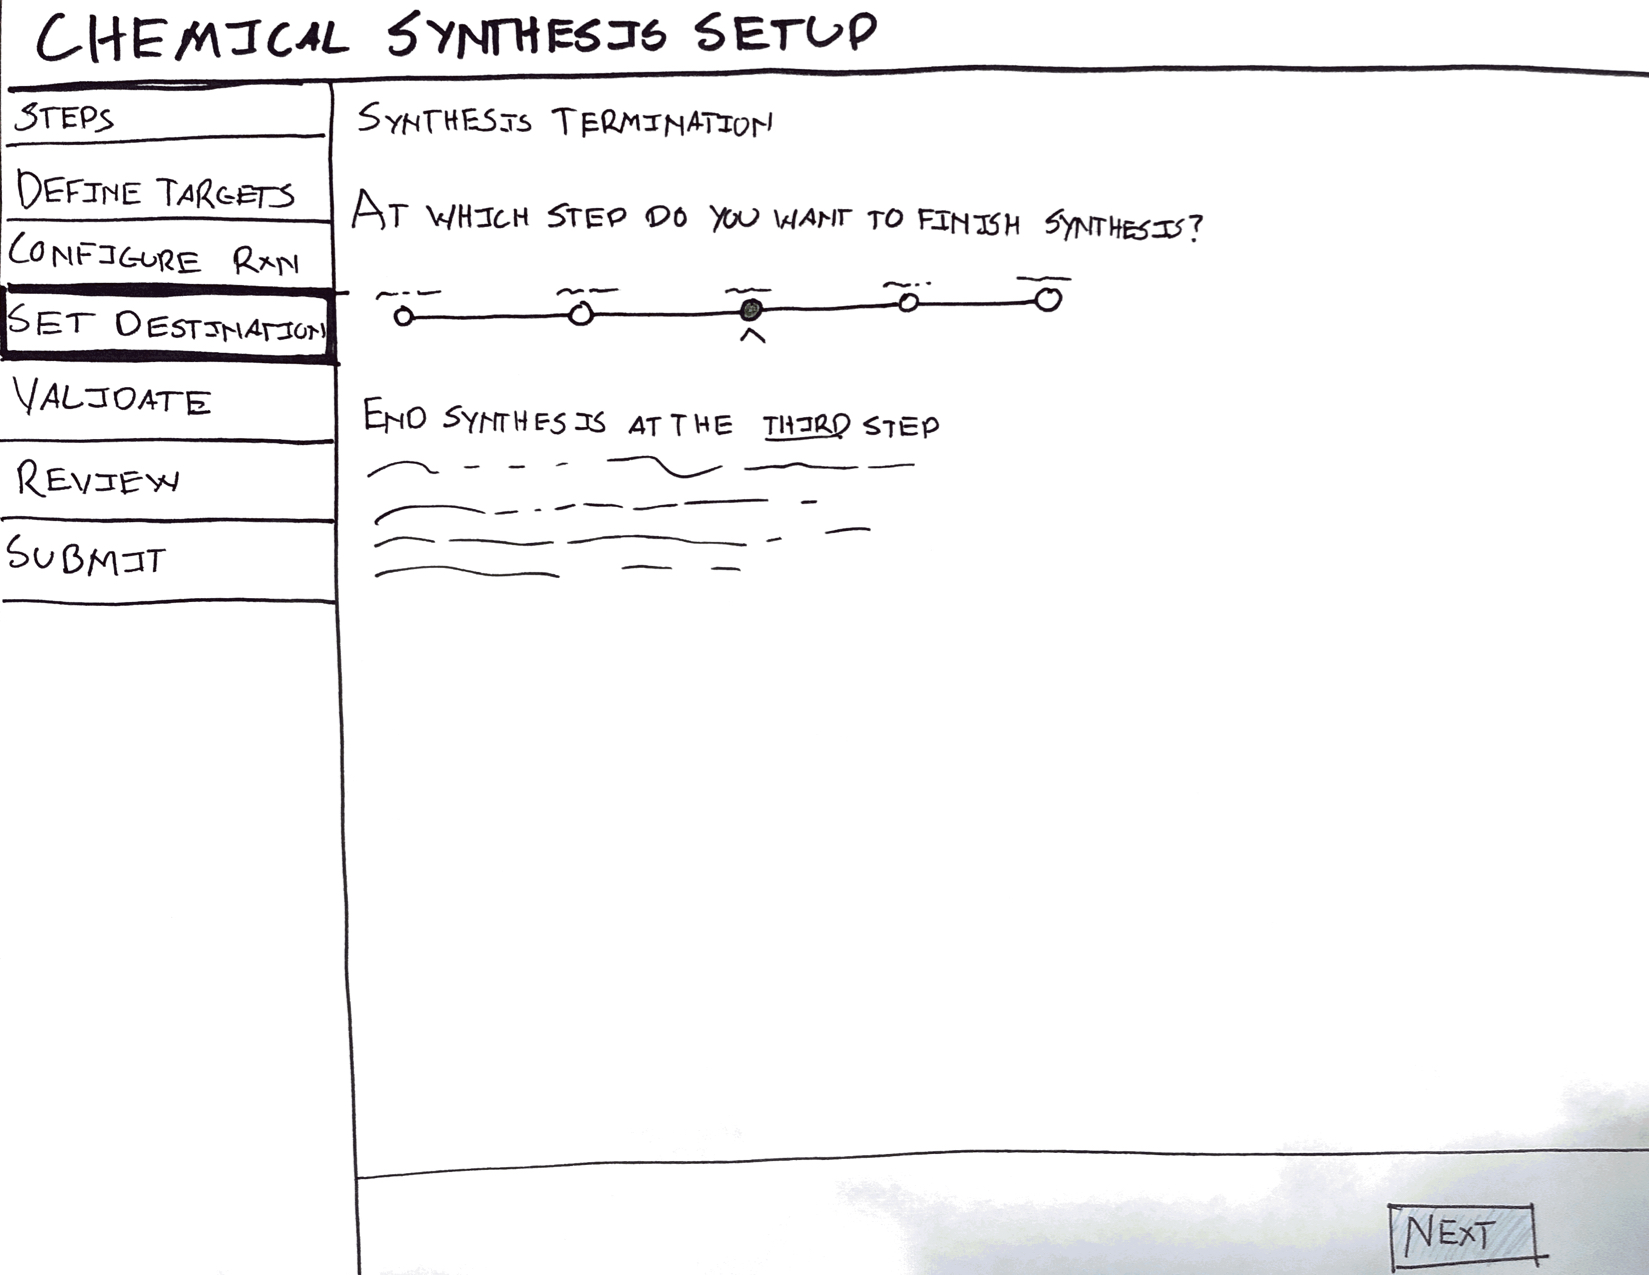 CHEMICAL SYNTHESIS SETUP
STEPS
DEFINE TARGETS
CONFIGURE RXN
SET DESTINATION
VALIDATE
REVIEW
SUBMIT
SYNTHESIS TERMINATION
AT WHICH STEP DO YOU WANT TO FINISH SYNTHESIS?
END SYNTHESIS AT THE THIRD STEP
NEXT